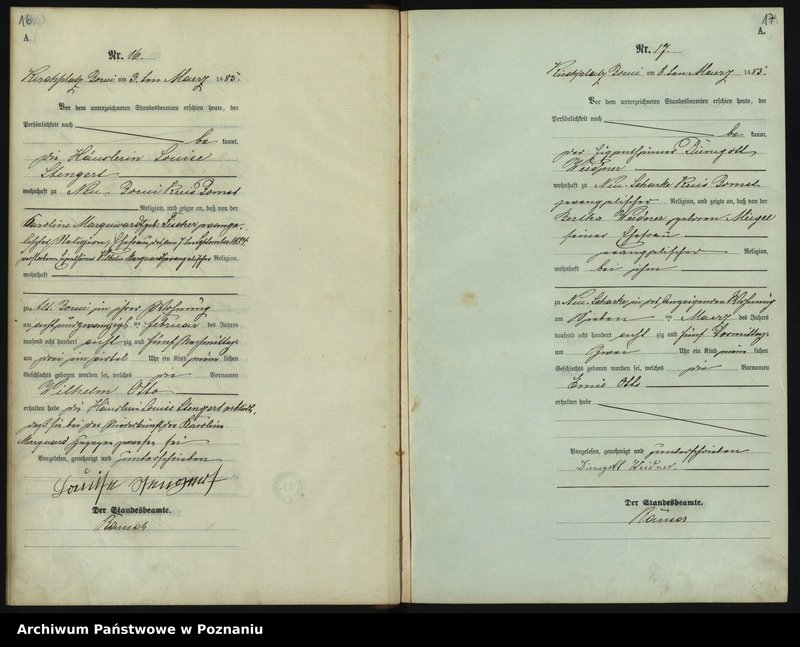 16
A.
Nr. 16.
Kirchplatz Borui am 3. ten Maerz 1885.
Vor dem unterzeichneten Standesbeamten erschien heute, der
Persönlichkeit nach
be kannt,
die Häuslerin Louise
Stengert
wohnhaft zu Neu-Borui Kreis Bomst
Religion, und zeigte an, daß von der
Karoline Marquardt geb. evange-
lischer Religion, Ehefrau des am 7 ten September 1884
verstorbenen Wilhelm Marquardt evangelischer Religion,
wohnhaft
zu Alt-Borui in ihrer Wohnung
am acht und zwanzig ten Februar des Jahres
tausend acht hundert acht zig und fünf Nachmittags
um drei ein viertel Uhr ein Kind männ lichen
Geschlechts geboren worden sei, welches die Vornamen
Wilhelm Otto
erhalten habe die Häuslerin Louise Stengert erklärte,
daß sie bei der Niederkunft der Karoline
Marquard zugegen gewesen sei
Vorgelesen, genehmigt und unterschrieben
Louise Stengert
Der Standesbeamte.
17
A.
Nr. 17.
Kirchplatz Borui am 8. ten Maerz 1885.
Vor dem unterzeichneten Standesbeamten erschien heute, der
Persönlichkeit nach
be kannt,
der Eigenthümer Dienegott
Weidner
wohnhaft zu Neu-Scharke Kreis Bomst
evangelischer Religion, und zeigte an, daß von der
Bertha Weidner geboren
seiner Ehefrau
evangelischer Religion,
wohnhaft bei ihm
zu Neu-Scharke, in des Anzeigenden Wohnung
am sieben ten Maerz des Jahres
tausend acht hundert acht zig und fünf Vormittags
um zwei Uhr ein Kind männ lichen
Geschlechts geboren worden sei, welches die Vornamen
Emil Otto
erhalten habe
Vorgelesen, genehmigt und unterschrieben
Dienegott Weidner.
Der Standesbeamte.
Archiwum Państwowe w Poznaniu